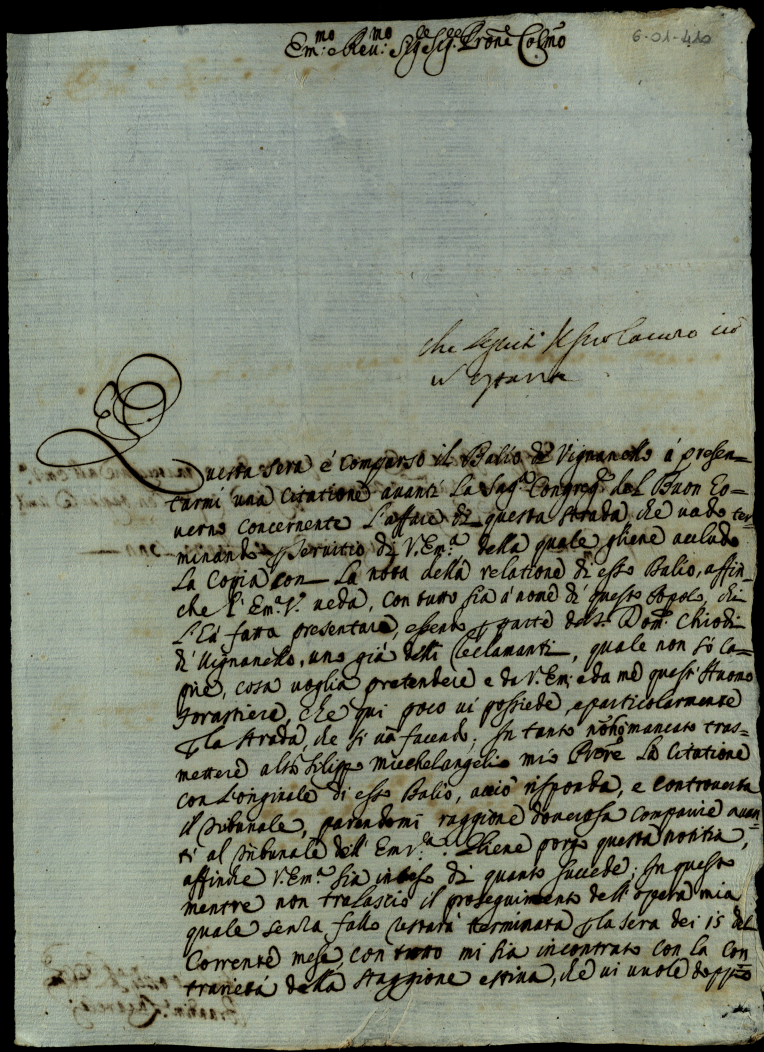 Em:mo e Rev:mo Sig:re Sig:re Prone Colmo
6-01-420
che seguiti il suo lavoro
Questa sera è comparso il Balio di Vignanello à presen=
tarmi una citatione avanti La Sag:a Congreg:e del Buon Go=
verno concernente L'affare di questa strada che vado ter=
minando p servitio di V. Em:a della quale gliene accludo
La Copia con La nota della relatione di esso Balio, affin=
che l'Em:a V:a veda, con tutto sia à nome di questo Popolo, chi
L'hà fatta presentare, essere p parte del S: Dom:co Chiodi
di Vignanello, uno già delli Reclamanti, quale non sò ca=
pire, cosa voglia pretendere e da V. Em: e da mè quest'Huomo
forastiere, che qui poco vi possiede, e particolarmente
p la strada, che si và facendo; In tanto non hò mancato tras=
mettere al Sre Filippo Michelangeli mio Prcre La Citatione
con L'originale di esso Balio, acciò risponda, e controverta
il Tribunale, parendomi raggione doverosa comparire avan=
ti al Tribunale dell'Em: V:ra. Gliene porgo questa notitia,
affinche V. Em:a sia inteso di quanto succede; In questo
mentre non tralascio il proseguimento dell'opera mia
quale senza fallo restarà terminata p la sera dei 15 del
Corrente mese, con tutto mi sia incontrato con la con
trarietà della staggione estiva, che vi vuole doppio